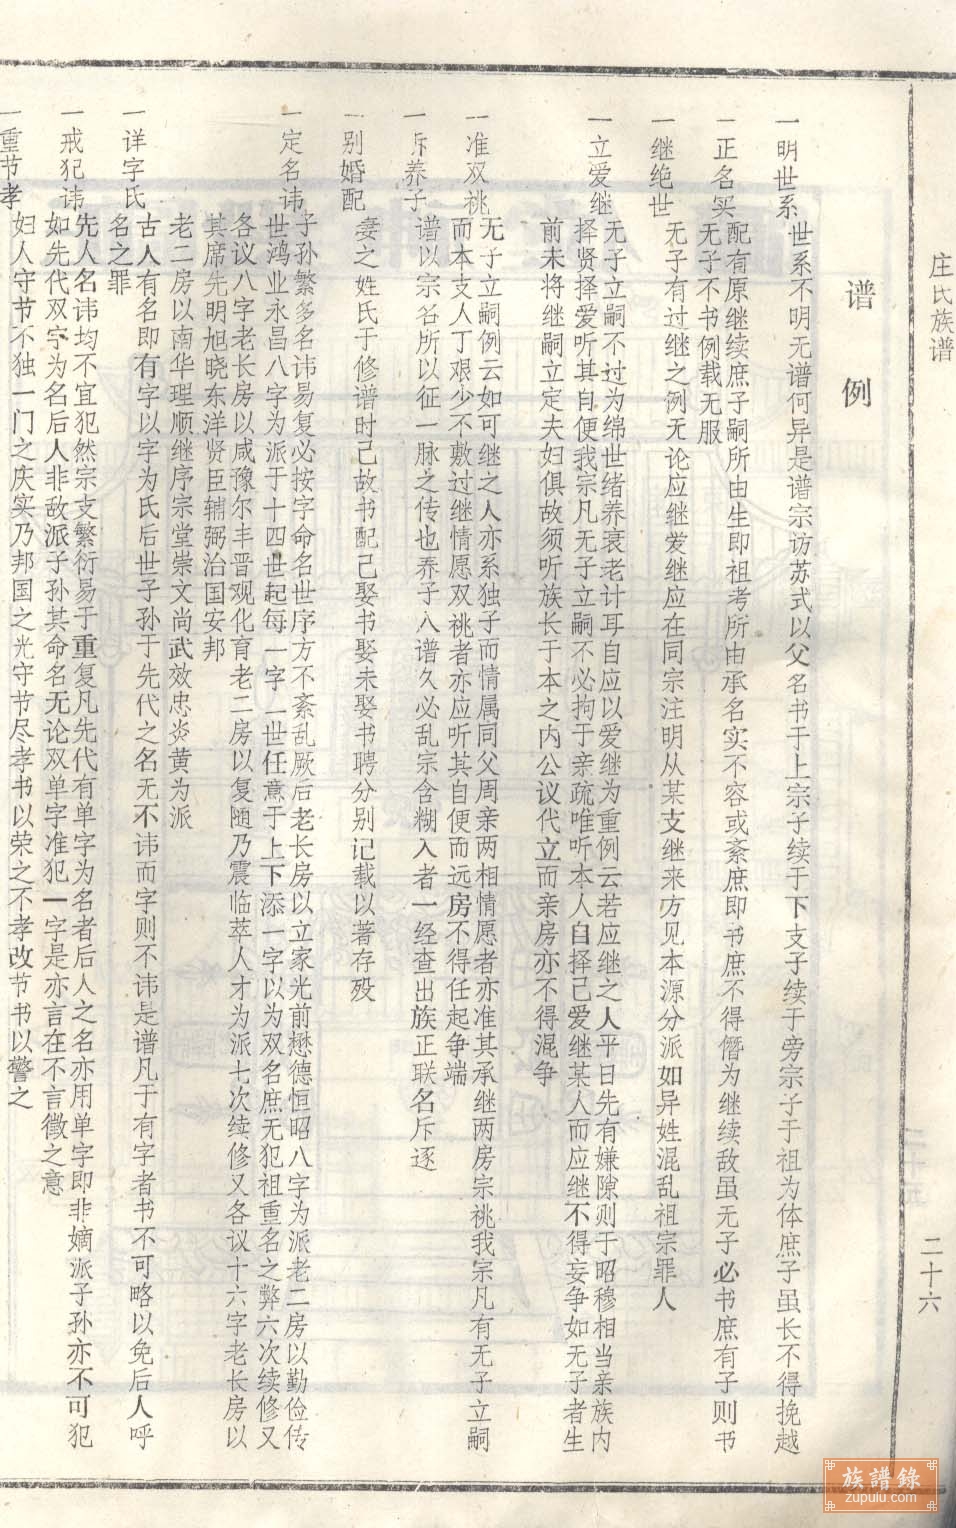 庄氏族谱
二十六
谱例
一明世系
世系不明无谱何异是谱宗访苏式以父名书于上宗子续于下支子续于旁宗子于祖为体庶子虽长不得挽越
一正名实
配有原继续庶子嗣所由生即祖考所由承名实不容或紊庶即书庶不得僭为继续敌虽无子必书庶有子则书
无子不书例载无服
一继绝世
无子有过继之例无论应继爱继应在同宗注明从某支继来方见本源分派如异姓混乱祖宗罪人
一立爱继
无子立嗣不过为绵世绪养衰老计耳自应以爱继为重例云若应继之人平日先有嫌隙则于昭穆相当亲族内
择贤择爱听其自便我宗凡无子立嗣不必拘于亲疏唯听本人自择己爱继某人而应继不得妄争如无子者生
前未将继嗣立定夫妇俱故须听族长于本之内公议代立而亲房亦不得混争
一准双祧
无子立嗣例云如可继之人亦系独子而情属同父周亲两相情愿者亦准其承继两房宗祧我宗凡有无子立嗣
而本支人丁艰少不敷过继情愿双祧者亦应听其自便而远房不得任起争端
一斥养子
谱以宗名所以征一脉之传也养子入谱久必乱宗含糊入者一经查出族正联名斥逐
一别婚配
妻之姓氏于修谱时己故书配己娶书娶未娶书聘分别记载以著存殁
一定名讳
子孙繁多名讳易复必按字命名世序方不紊乱厥后老长房以立家光前懋德恒昭八字为派老二房以勤俭传
世鸿业永昌八字为派于十四世起每一字一世任意于上下添一字以为双名庶无犯祖重名之弊六次续修又
各议八字老长房以咸豫尔丰晋观化育老二房以复随乃震临萃人才为派七次续修又各议十六字老长房以
其席先明旭晓东洋贤臣辅弼治国安邦
老二房以南华理顺继序宗堂崇文尚武效忠炎黄为派
一详字氏
古人有名即有字以字为氏后世子孙于先代之名无不讳而字则不讳是谱凡于有字者书不可略以免后人呼
名之罪
一戒犯讳
先人名讳均不宜犯然宗支繁衍易于重复凡先代有单字为名者后人之名亦用单字即非嫡派子孙亦不可犯
如先代双字为名后人非敌派子孙其命名无论双单字准犯一字是亦言在不言徵之意
一重节孝
妇人守节不独一门之庆实乃邦国之光守节尽孝书以荣之不孝改节书以警之
族譜錄
zupulu.com